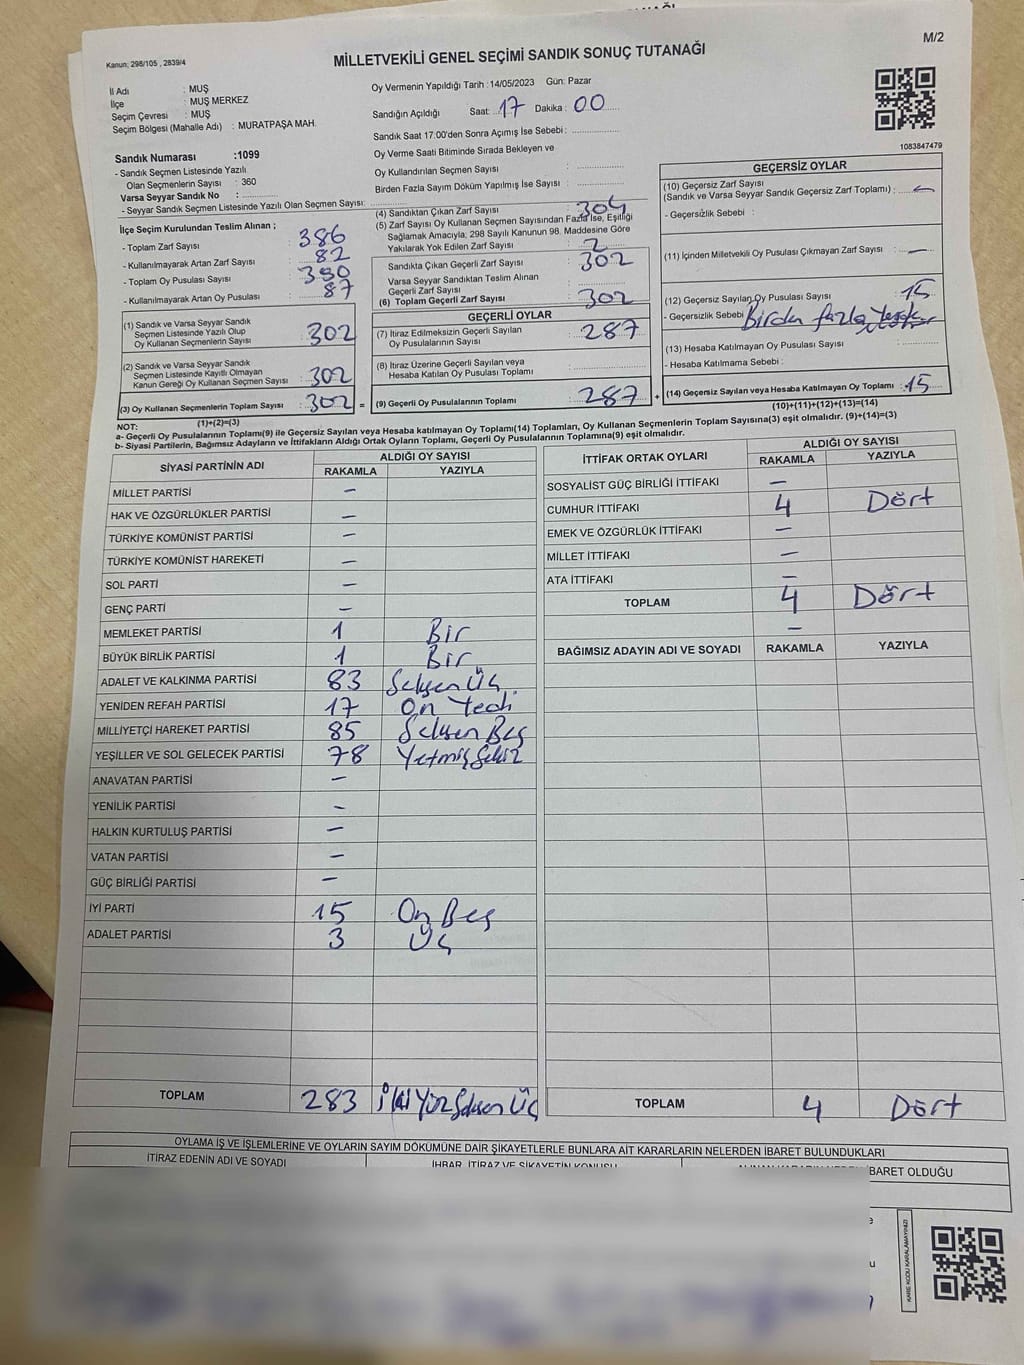 M/2
Kanun: 298/105 , 2839/4
MİLLETVEKİLİ GENEL SEÇİMİ SANDIK SONUÇ TUTANAĞI
İl Adı : MUŞ
İlçe : MUŞ MERKEZ
Seçim Çevresi : MUŞ
Seçim Bölgesi (Mahalle Adı) : MURATPAŞA MAH.
Sandık Numarası :1099
- Sandık Seçmen Listesinde Yazılı
Olan Seçmenlerin Sayısı : 360
Varsa Seyyar Sandık No :
- Seyyar Sandık Seçmen Listesinde Yazılı Olan Seçmen Sayısı:
İlçe Seçim Kurulundan Teslim Alınan ;
- Toplam Zarf Sayısı : 386
- Kullanılmayarak Artan Zarf Sayısı : 82
- Toplam Oy Pusulası Sayısı :
- Kullanılmayarak Artan Oy Pusulası : 87
(1) Sandık ve Varsa Seyyar Sandık
Seçmen Listesinde Yazılı Olup
Oy Kullanan Seçmenlerin Sayısı : 302
(2) Sandık ve Varsa Seyyar Sandık
Seçmen Listesinde Kayıtlı Olmayan
Kanun Gereği Oy Kullanan Seçmen Sayısı : 302
(3) Oy Kullanan Seçmenlerin Toplam Sayısı : 302 =
(1)+(2)=(3)
Oy Vermenin Yapıldığı Tarih : 14/05/2023 Gün: Pazar
Sandığın Açıldığı Saat: 17 Dakika : 00
Sandık Saat 17:00'den Sonra Açımış İse Sebebi :
Oy Verme Saati Bitiminde Sırada Bekleyen ve
Oy Kullandırılan Seçmen Sayısı :
Birden Fazla Sayım Döküm Yapılmış İse Sayısı :
(4) Sandıktan Çıkan Zarf Sayısı : 304
(5) Zarf Sayısı Oy Kullanan Seçmen Sayısından Fazla İse, Eşitliği
Sağlamak Amacıyla, 298 Sayılı Kanunun 98. Maddesine Göre
Yakılarak Yok Edilen Zarf Sayısı : 2
Sandıkta Çıkan Geçerli Zarf Sayısı : 302
Varsa Seyyar Sandıktan Teslim Alınan
Geçerli Zarf Sayısı :
(6) Toplam Geçerli Zarf Sayısı : 302
GEÇERLİ OYLAR
(7) İtiraz Edilmeksizin Geçerli Sayılan
Oy Pusulalarının Sayısı : 287
(8) İtiraz Üzerine Geçerli Sayılan veya
Hesaba Katılan Oy Pusulası Toplamı :
(9) Geçerli Oy Pusulalarının Toplamı : 287 +
1083847479
GEÇERSİZ OYLAR
(10) Geçersiz Zarf Sayısı
(Sandık ve Varsa Seyyar Sandık Geçersiz Zarf Toplamı) : -
- Geçersizlik Sebebi :
(11) İçinden Milletvekili Oy Pusulası Çıkmayan Zarf Sayısı : -
(12) Geçersiz Sayılan Oy Pusulası Sayısı : 15
- Geçersizlik Sebebi : Birden fazla
(13) Hesaba Katılmayan Oy Pusulası Sayısı :
- Hesaba Katılmama Sebebi :
(14) Geçersiz Sayılan veya Hesaba Katılmayan Oy Toplamı : 15
(10)+(11)+(12)+(13)=(14)
NOT:
a- Geçerli Oy Pusulalarının Toplamı(9) ile Geçersiz Sayılan veya Hesaba katılmayan Oy Toplamı(14) Toplamları, Oy Kullanan Seçmenlerin Toplam Sayısına(3) eşit olmalıdır. (9)+(14)=(3)
b- Siyasi Partilerin, Bağımsız Adayların ve İttifakların Aldığı Ortak Oyların Toplamı, Geçerli Oy Pusulalarının Toplamına(9) eşit olmalıdır.
SİYASİ PARTİNİN ADI ALDIĞI OY SAYISI
RAKAMLA YAZIYLA
MİLLET PARTİSİ -
HAK VE ÖZGÜRLÜKLER PARTİSİ -
TÜRKİYE KOMÜNİST PARTİSİ -
TÜRKİYE KOMÜNİST HAREKETİ -
SOL PARTİ -
GENÇ PARTİ -
MEMLEKET PARTİSİ 1 Bir
BÜYÜK BİRLİK PARTİSİ 1 Bir
ADALET VE KALKINMA PARTİSİ 83 Seksen Üç
YENİDEN REFAH PARTİSİ 17 On Yedi
MİLLİYETÇİ HAREKET PARTİSİ 85 Seksen Beş
YEŞİLLER VE SOL GELECEK PARTİSİ 78 Yetmiş Sekiz
ANAVATAN PARTİSİ -
YENİLİK PARTİSİ -
HALKIN KURTULUŞ PARTİSİ -
VATAN PARTİSİ -
GÜÇ BİRLİĞİ PARTİSİ -
İYİ PARTİ 15 On Beş
ADALET PARTİSİ 3 Üç
TOPLAM 283 İki Yüz Seksen Üç
İTTİFAK ORTAK OYLARI ALDIĞI OY SAYISI
RAKAMLA YAZIYLA
SOSYALİST GÜÇ BİRLİĞİ İTTİFAKI -
CUMHUR İTTİFAKI 4 Dört
EMEK VE ÖZGÜRLÜK İTTİFAKI -
MİLLET İTTİFAKI -
ATA İTTİFAKI -
TOPLAM 4 Dört
-
BAĞIMSIZ ADAYIN ADI VE SOYADI RAKAMLA YAZIYLA
TOPLAM 4 Dört
OYLAMA İŞ VE İŞLEMLERİNE VE OYLARIN SAYIM DÖKÜMÜNE DAİR ŞİKAYETLERLE BUNLARA AİT KARARLARIN NELERDEN İBARET BULUNDUKLARI
İTİRAZ EDENİN ADI VE SOYADI İHBAR, İTİRAZ VE ŞİKAYETİN KONUSU İBARET OLDUĞU
KARE KODU KARALAMAYINIZ!